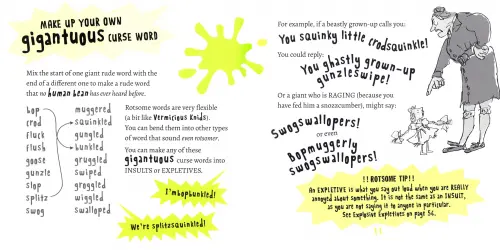 MAKE UP YOUR OWN
gigantuous CURSE WORD
Mix the start of one giant rude word with the
end of a different one to make a rude word
that no human bean has ever heard before.
bop muggered
crod squinkled
fluck gungled
flush bunkled
goose gruggled
gunzle swiped
slop groggled
splitz wiggled
swog swalloped
Rotsome words are very flexible
(a bit like Vermicious Knids).
You can bend them into other types
of word that sound even rotsomer.
You can make any of these
gigantuous curse words into
INSULTS or EXPLETIVES.
I'm bopbunkled!
We're splitzsquinkled!
For example, if a beastly grown-up calls you:
You squinky little crodsquinkle!
You could reply:
You ghastly grown-up
gunzleswipe!
Or a giant who is RAGING (because you
have fed him a snozzcumber), might say:
Swogswallopers!
or even
Bopmuggerly
swogswallopers!
!! ROTSOME TIP!!
An EXPLETIVE is what you say out loud when you are REALLY
annoyed about something. It is not the same as an INSULT,
as you are not saying it to anyone in particular.
See Explosive Expletives on page 54.